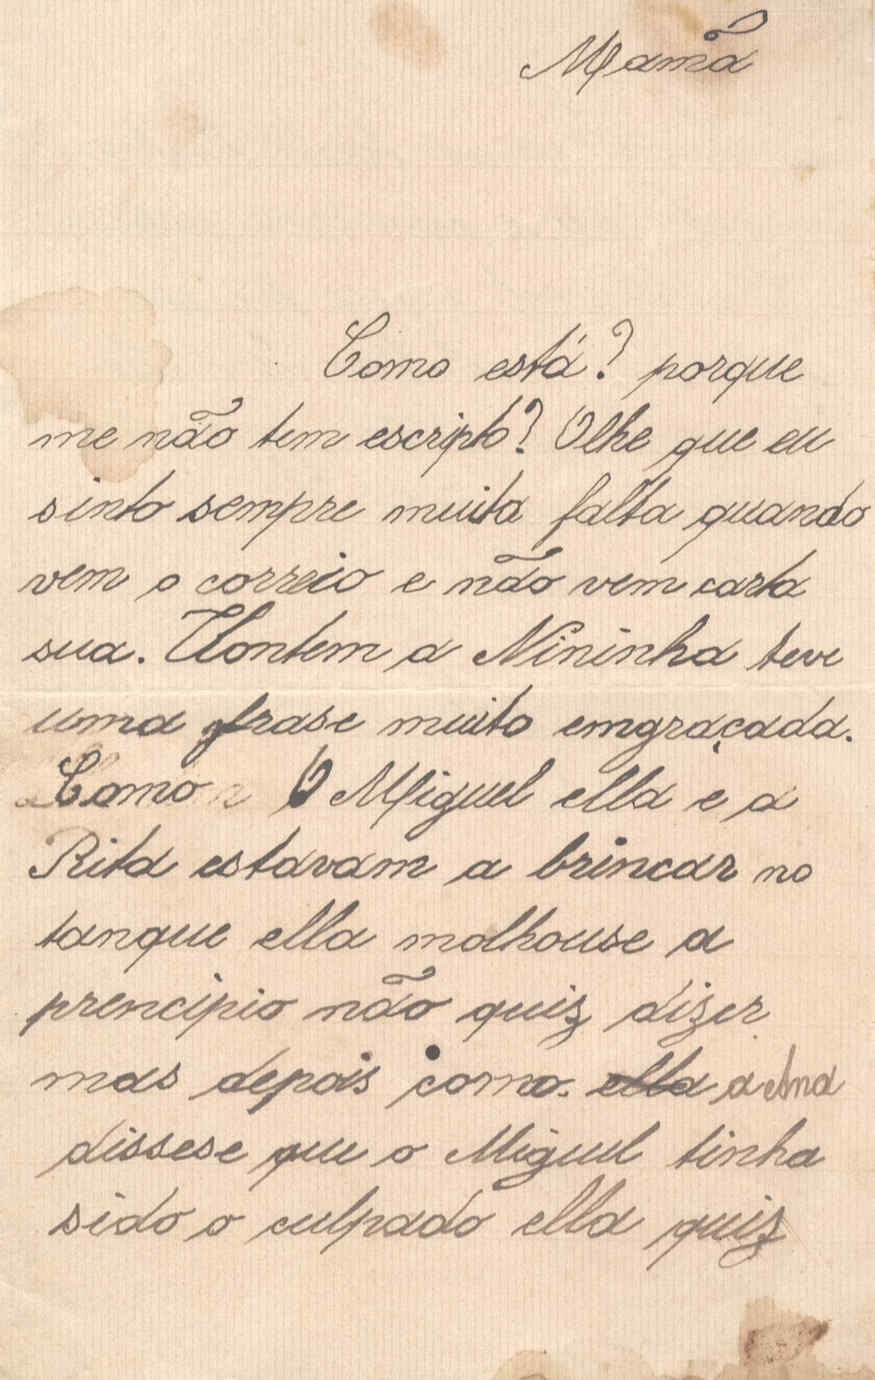 Mamã
Como está? porque
me não tem escripto? Olhe que eu
sinto sempre muita falta quando
vem o correio e não vem carta
sua. Hontem a Nininha teve
uma frase muito emgraçada.
Como O Miguel ella e a
Rita estavam a brincar no
tanque ella molhouse a
prencipio não quiz dizer
mas depois como. ella a Ana
dissese que o Miguel tinha
sido o culpado ella quiz